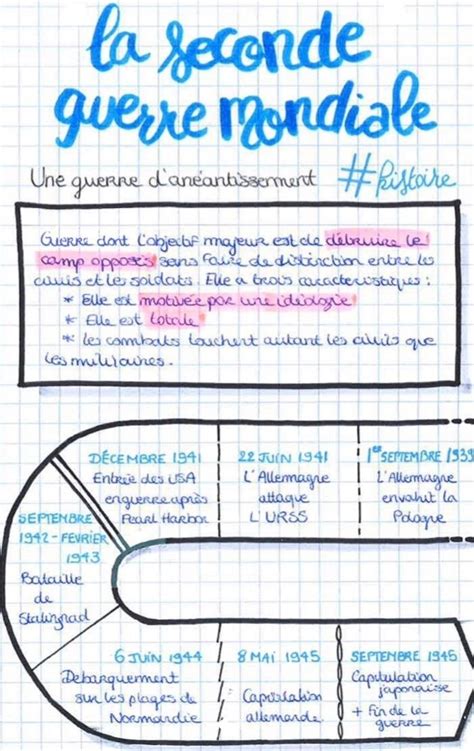 la seconde
guerre mondiale
Une guerre d'anéantissement #histoire
Guerre dont l'objectif majeur est de détruire le
camp opposé sans faire de distinction entre les
civils et les soldats. Elle a trois caractéristiques :
* Elle est motivée par une idéologie
* Elle est totale
* les combats touchent autant les civils que
les militaires.
1er SEPTEMBRE 1939
L'Allemagne
envahit la
Pologne
22 JUIN 1941
L'Allemagne
attaque
L'URSS
DÉCEMBRE 1941
Entrée des USA
en guerre après
Pearl Harbor
SEPTEMBRE
1942-FEVRIER
1943
Bataille
de
Stalingrad
6 JUIN 1944
Débarquement
sur les plages de
Normandie
8 MAI 1945
Capitulation
allemande
SEPTEMBRE 1945
Capitulation
japonaise
+ Fin de la
guerre